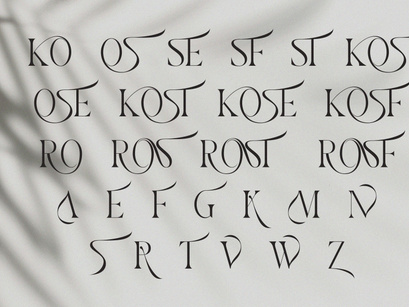 KO OS SE SF ST KOS
OSE KOST KOSE KOSF
RO ROS ROST ROSF
A E F G K M N
S R T V W Z